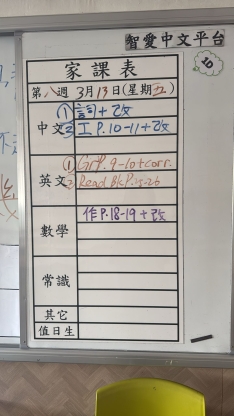 智愛中文平台
家課表
第八週 3月13日(星期五)
10
中文 ① 詞+改
② 工 P.10-11+改
英文 ① GrP. 9-10+corr.
② Read Bk P.25-26
數學 作 P.18-19 +改
常識
其它
值日生